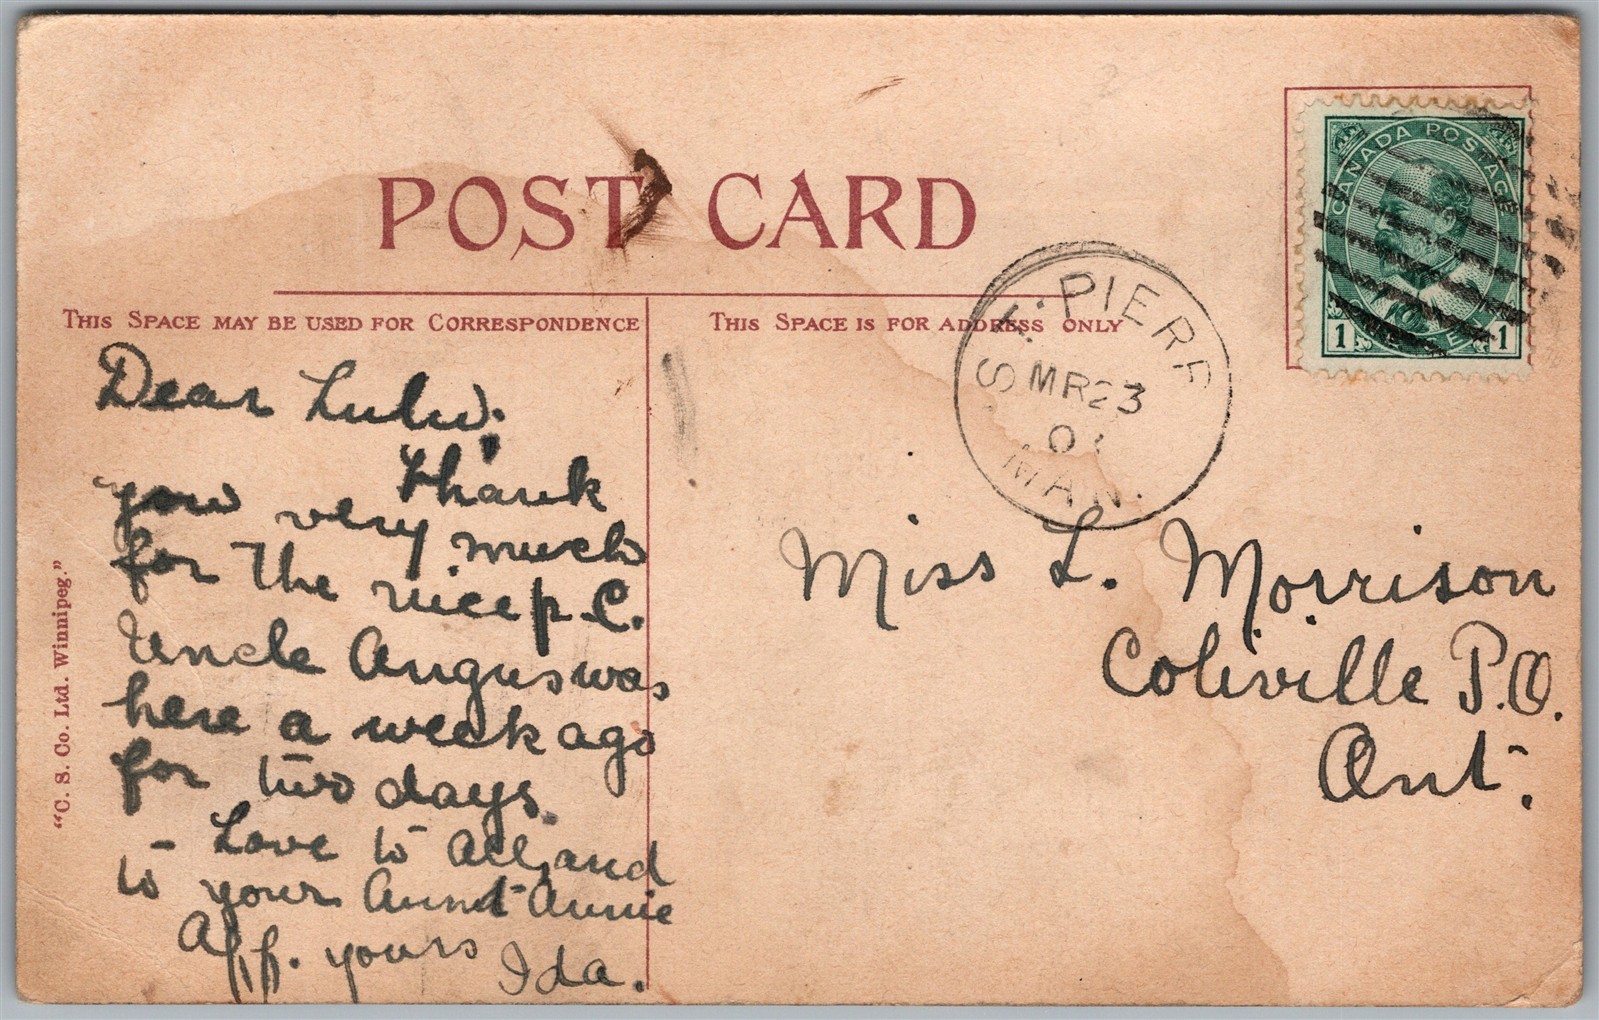 POST CARD
THIS SPACE MAY BE USED FOR CORRESPONDENCE
THIS SPACE IS FOR ADDRESS ONLY
CANADA POSTAGE
1 1
ST. PIERR
MR 23
MAN.
Dear Lulu;
Thank
you very much
for the nice p.C.
Uncle Angus was
here a week ago
for two days.
Love to all, and
to your Aunt Annie
Aff. yours Ida.
Miss L. Morrison
Coliville P.O.
Ont.
"C. S. Co. Ltd. Winnipeg."